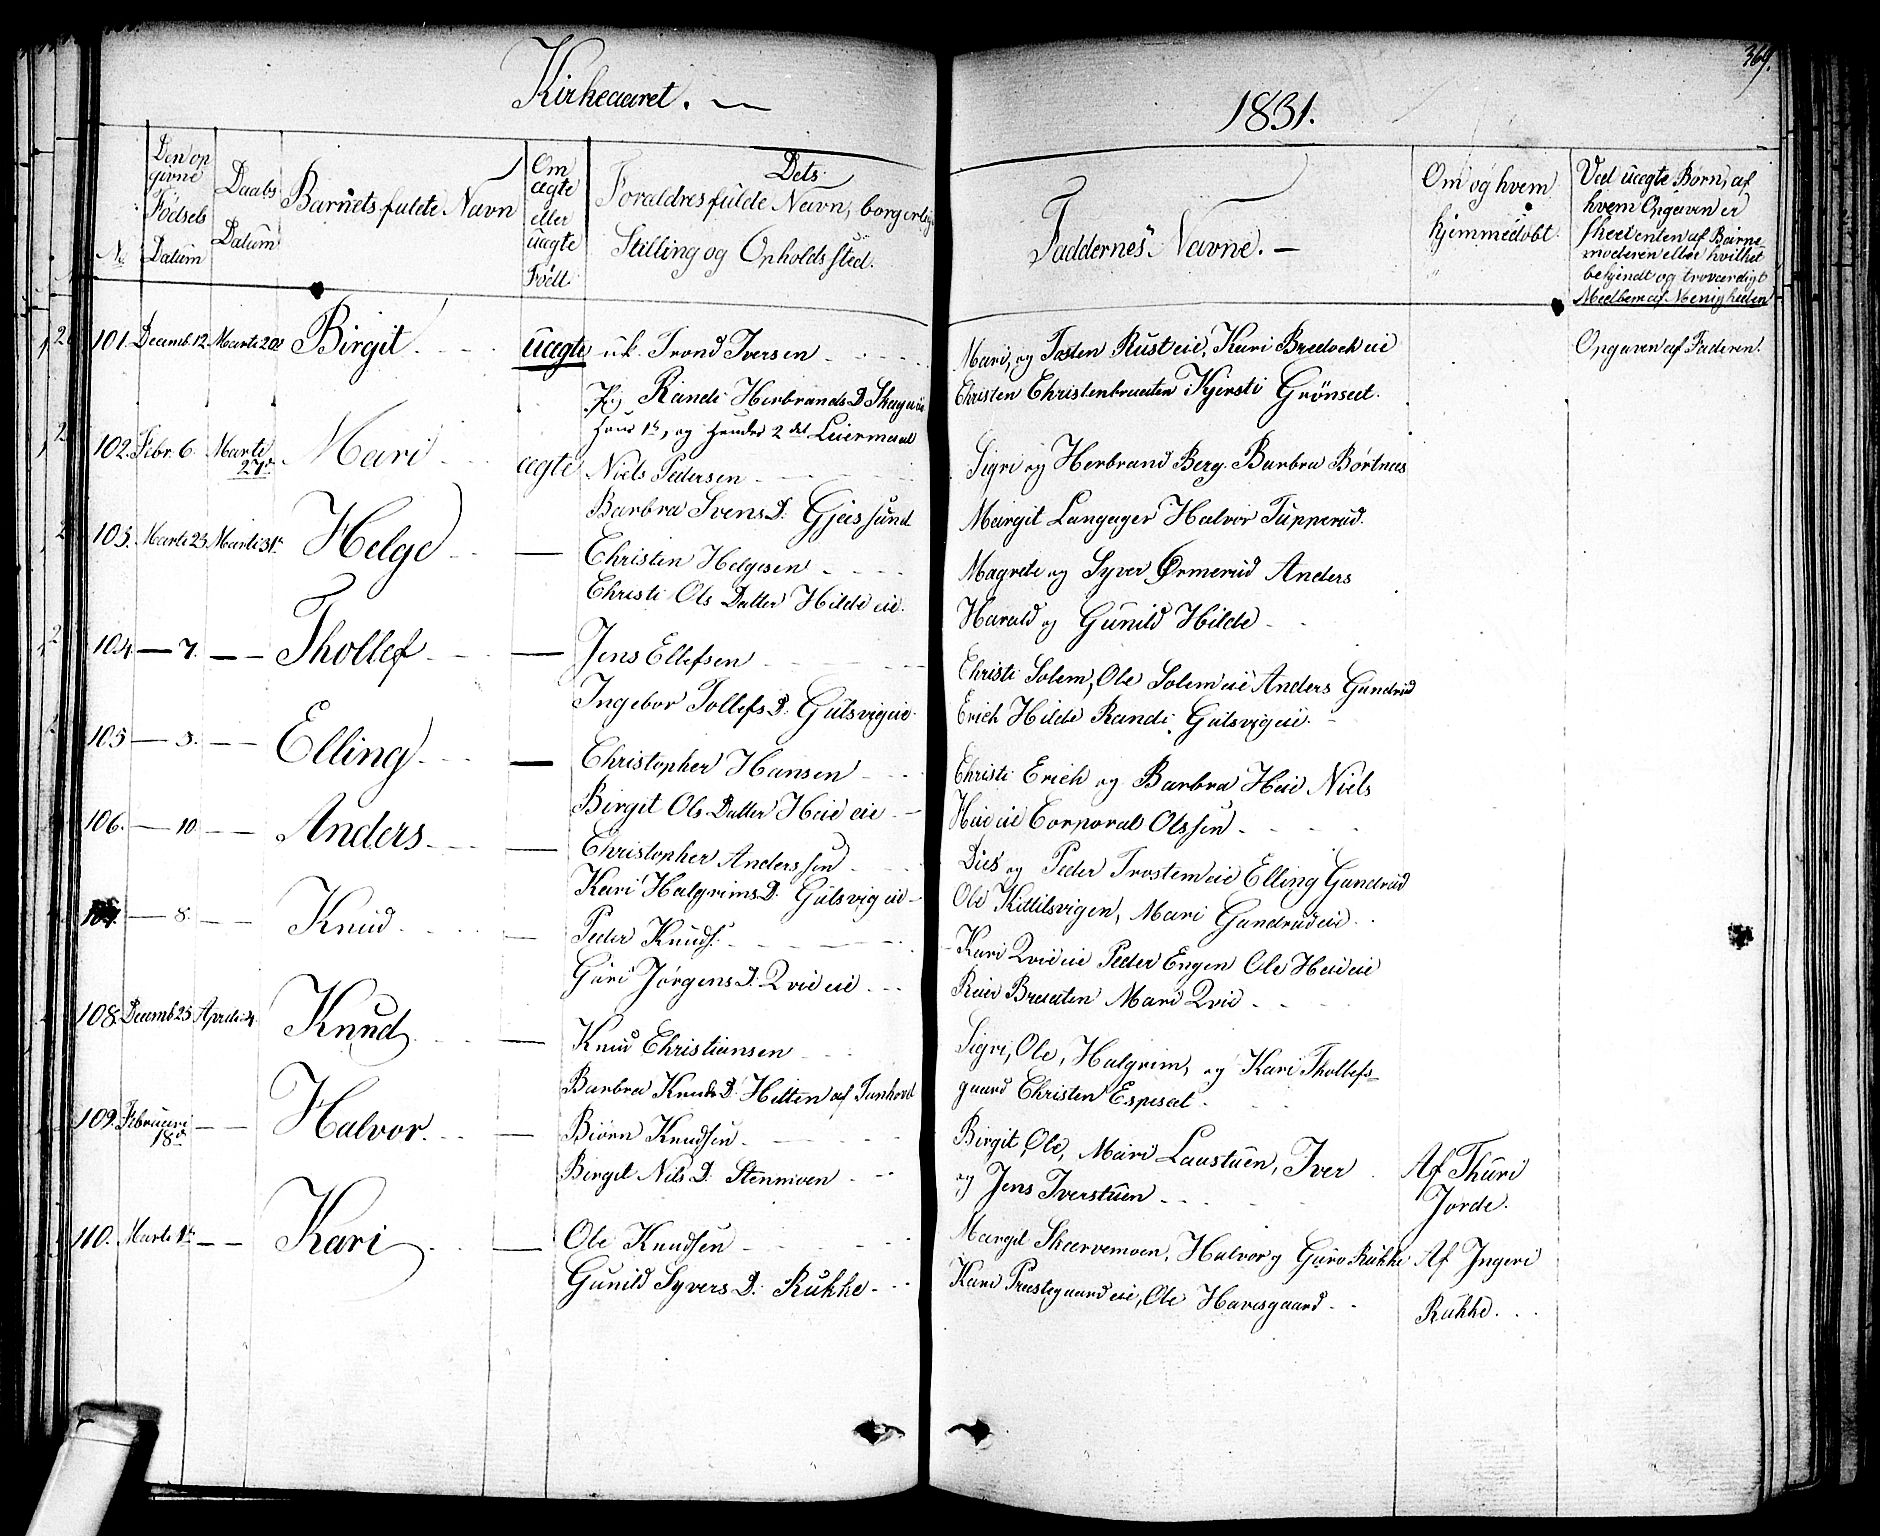 Kirkeaaret. —
1831.
369.
No
Den op
givne
Fødsels
Datum
Daabs
Datum
Barnets fulde Navn
Om
ægte
eller
uægte
Født
Dets
Forældres fulde Navn, borgerlig
Stilling og Opholdssted.
Faddernes Navne. —
Om og hvem
hjemmedøbt
Ved uægte Børn, af
hvem Opgaven er
skeet enten af Barne-
moderen eller hvilket
bekjendt og troværdigt
Medlem af Menigheden
101. Decemb. 12. Marti 20de Birgit. uægte u.k. Trond Iversen
P. Randi Herbrands D. Skagneie
Hans 1te, og Hendes 2det Leiermaal
Mari, og Tosten Rusteie, Kari Bredocheie
Christen Christenbraaten Kjersti Grønset.
Opgaven af Faderen.
102. Febr. 6. Marti 27de Mari ægte Niels Pedersen
Barbra Svens D. Gjeissund
Sigri og Herbrand Berg. Barbra Børtnes
Margit Langager Halvor Tupperud.
103. Marti 23. Marti 31te Helge — Christen Helgesen
Christi Ols Datter Hilde eie.
Magrete og Syver Ørmerud Anders
Harald og Gunild Hilde
104 — 7. — — Thollef — Jens Ellefsen
Ingebor Tollefs D. Gulsvigeie.
Christi Solem, Ole Solemeie Anders Gundrud
Erich Hilde Randi Gulsvigeie.
105 — 3. — — Elling — Christopher Hansen
Birgit Ols Datter Heieeie
Christi Erich og Barbra Heie Niels
Heieeie Corporal Olssen
106. — 10 — — Anders — Christopher Anderssen
Kari Halgrims D. Gulsvigeie
Dies og Peder Trostemeie Elling Gundrud
Ole Kittilsvigen, Mari Gundrudeie
107. — 8. — — Knud — Peder Knuds.
Guri Jørgens D. Qvieeie
Kari Qvieeie Peder Engen Ole Heieeie
Braaten Mari Qvie
108. Decemb 25 April 4. Knud — Knud Christiansen
Barbra Knuds D. Hilten af Tunhovd
Sigri, Ole, Halgrim, og Kari Thollefs-
gaard Christen Espesat
109. Februari 18de — — Halvor. — Biørn Knudsen
Birgit Nils D. Stenmoen
Birgit, Ole, Mari Laustuen, Iver
og Jens Iverstuen
Af Thuri
Jorde.
110. Marti 1te — — Kari — Ole Knudsen
Gunild Syvers D. Rukke
Margit Skarvemoen, Halvor og Guro Rukke
Kari Præstegaardeie, Ole Haresgaard
Af Ingeri
Rukke.